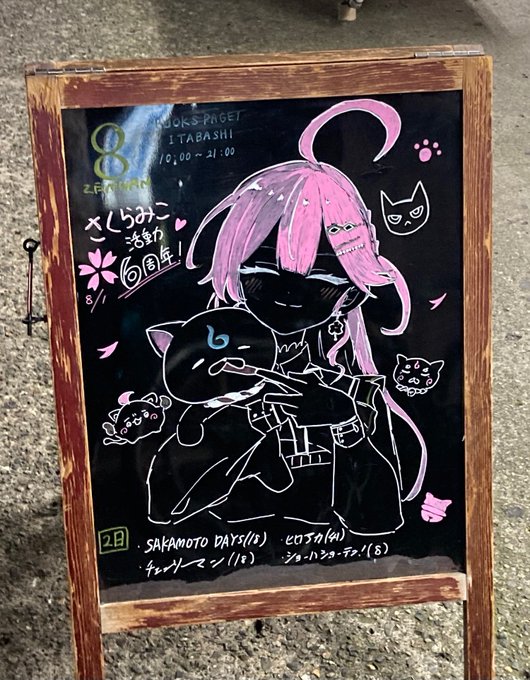 8
OOKS PAGET
ITABASHI
10:00～21:00
さくらみこ
活動
6周年!
8/1
2日
・SAKAMOTO DAYS(18)
・ヒロアカ(41)
・チェンソーマン(18)
・ショーハショーテン!(8)